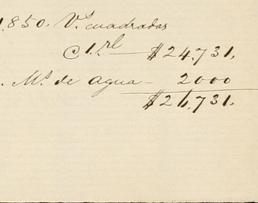 1.850. Vˢ cuadradas
@ 1. rl — $24,731.
. Mˢ de agua — 2000
$26,731.